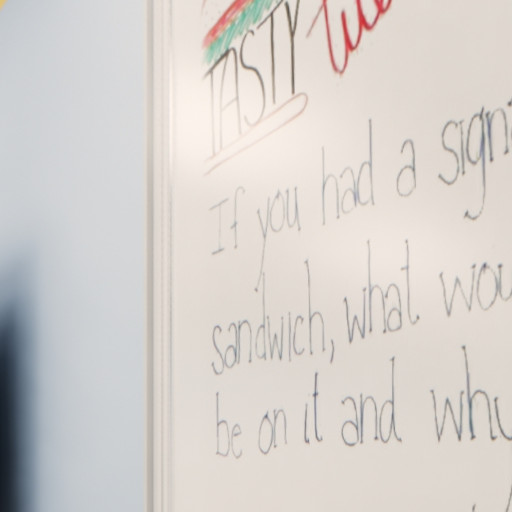 TASTY
If you had a sign
sandwich, what wou
be on it and why